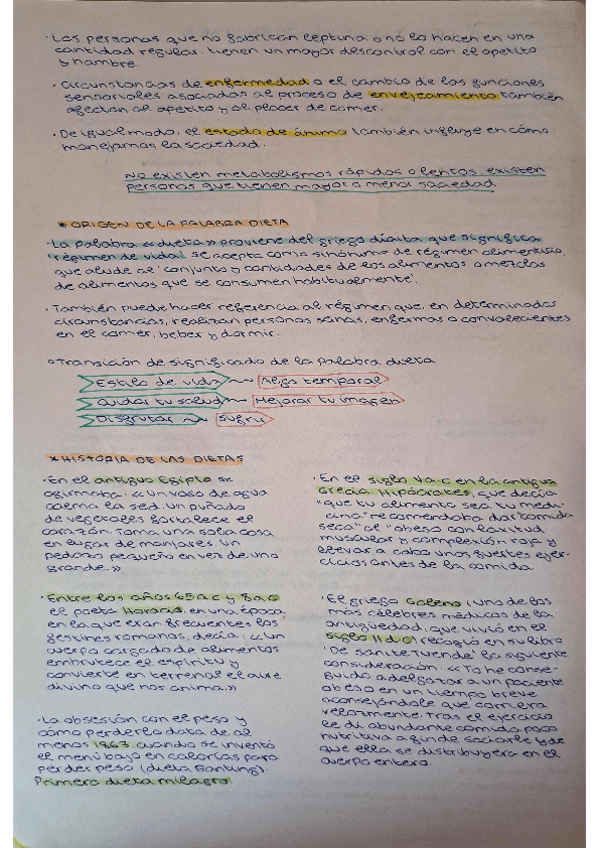 · Las personas que no fabrican leptina o no lo hacen en una
cantidad regular, tienen un mayor descontrol con el apetito
y hambre.
· Circunstancias de enfermedad o el cambio de las funciones
sensoriales asociadas al proceso de envejecimiento también
afectan al apetito y al placer de comer.
· De igual modo, el estado de ánimo también influye en cómo
manejamos la saciedad.
No existen metabolismos rápidos o lentos, existen
personas que tienen mayor o menor saciedad
* ORIGEN DE LA PALABRA DIETA
· La palabra «dieta» proviene del griego díaita que significa
'régimen de vida'. se acepta como sinónimo de régimen alimenticio,
que alude al 'conjunto y cantidades de los alimentos o mezclas
de alimentos que se consumen habitualmente'.
· También puede hacer referencia al régimen que, en determinadas
circunstancias, realizan personas sanas, enfermas o convalecientes
en el comer, beber y dormir.
o Transición de significado de la palabra dieta
Estilo de vida ~ Algo temporal
Cuidar tu salud ~ Mejorar tu imagen
Disfrutar ~ Sufrir
* HISTORIA DE LAS DIETAS
· En el antiguo Egipto se
afirmaba: «Un vaso de agua
calma la sed, un puñado
de vegetales fortalece el
corazón. Toma una sola cosa
en lugar de manjares. Un
pedazo pequeño en vez de uno
grande.»
· Entre los años 65 a.c y 8 a.c
el poeta Horacio, en una época
en la que eran frecuentes los
festines romanos, decía: «Un
cuerpo cargado de alimentos
embrutece el espíritu y
convierte en terrenal el aire
divino que nos anima.»
· La obsesión con el peso y
cómo perderlo data de al
menos 1863, cuando se inventó
el menú bajo en calorías para
perder peso (dieta Banting).
Primera dieta milagro.
· En el siglo V a.c en la antigua
Grecia Hipócrates, que decía
"que tu alimento sea tu medi-
cina" recomendaba dar "comida
seca" al "obeso con laxitud
muscular y complexión roja y
llevar a cabo unos fuertes ejer-
cicios antes de la comida
· El griego Galeno (uno de los
más célebres médicos de la
antigüedad, que vivió en el
siglo II d.C) recogió en su libro
'De sanite Tuende' la siguiente
consideración: «Yo he conse-
guido adelgazar a un paciente
obeso en un tiempo breve
aconsejándole que corriera
velozmente. Tras el ejercicio
le di abundante comida poco
nutritiva a fin de saciarle y de
que ella se distribuyera en el
cuerpo entero.